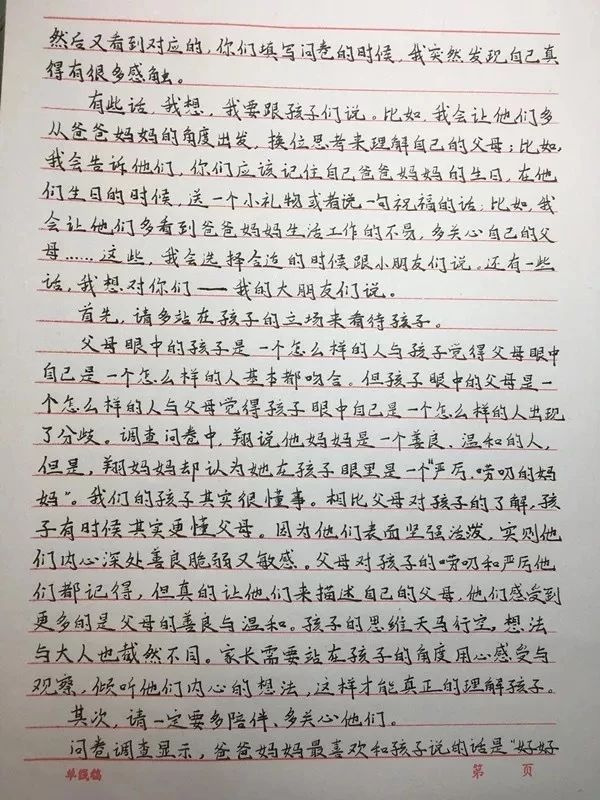 然后又看到对应的,你们填写问卷的时候,我突然发现自己真
得有很多感触。
有些话,我想,我要跟孩子们说。比如,我会让他们多
从爸爸妈妈的角度出发,换位思考来理解自己的父母;比如,
我会告诉他们,你们应该记住自己爸爸妈妈的生日,在他
们生日的时候,送一个小礼物或者说一句祝福的话;比如,我
会让他们多看到爸爸妈妈生活工作的不易,多关心自己的父
母……这些,我会选择合适的时候跟小朋友们说。还有一些
话,我想对你们——我的大朋友们说。
首先,请多站在孩子的立场来看待孩子。
父母眼中的孩子是一个怎么样的人与孩子觉得父母眼中
自己是一个怎么样的人基本都吻合。但孩子眼中的父母是一
个怎么样的人与父母觉得孩子眼中自己是一个怎么样的人出现
了分歧。调查问卷中,翔说他妈妈是一个善良、温和的人,
但是,翔妈妈却认为她在孩子眼里是一个“严厉,唠叨的妈
妈”。我们的孩子其实很懂事。相比父母对孩子的了解,孩
子有时候其实更懂父母。因为他们表面坚强活泼,实则他
们内心深处善良脆弱又敏感。父母对孩子的唠叨和严厉他
们都记得,但真的让他们来描述自己的父母,他们感受到
更多的是父母的善良与温和。孩子的思维天马行空,想法
与大人也截然不同。家长需要站在孩子的角度用心感受与
观察,倾听他们内心的想法,这样才能真正的理解孩子。
其次,请一定要多陪伴、多关心他们。
问卷调查显示,爸爸妈妈最喜欢和孩子说的话是“好好
单线稿 第 页